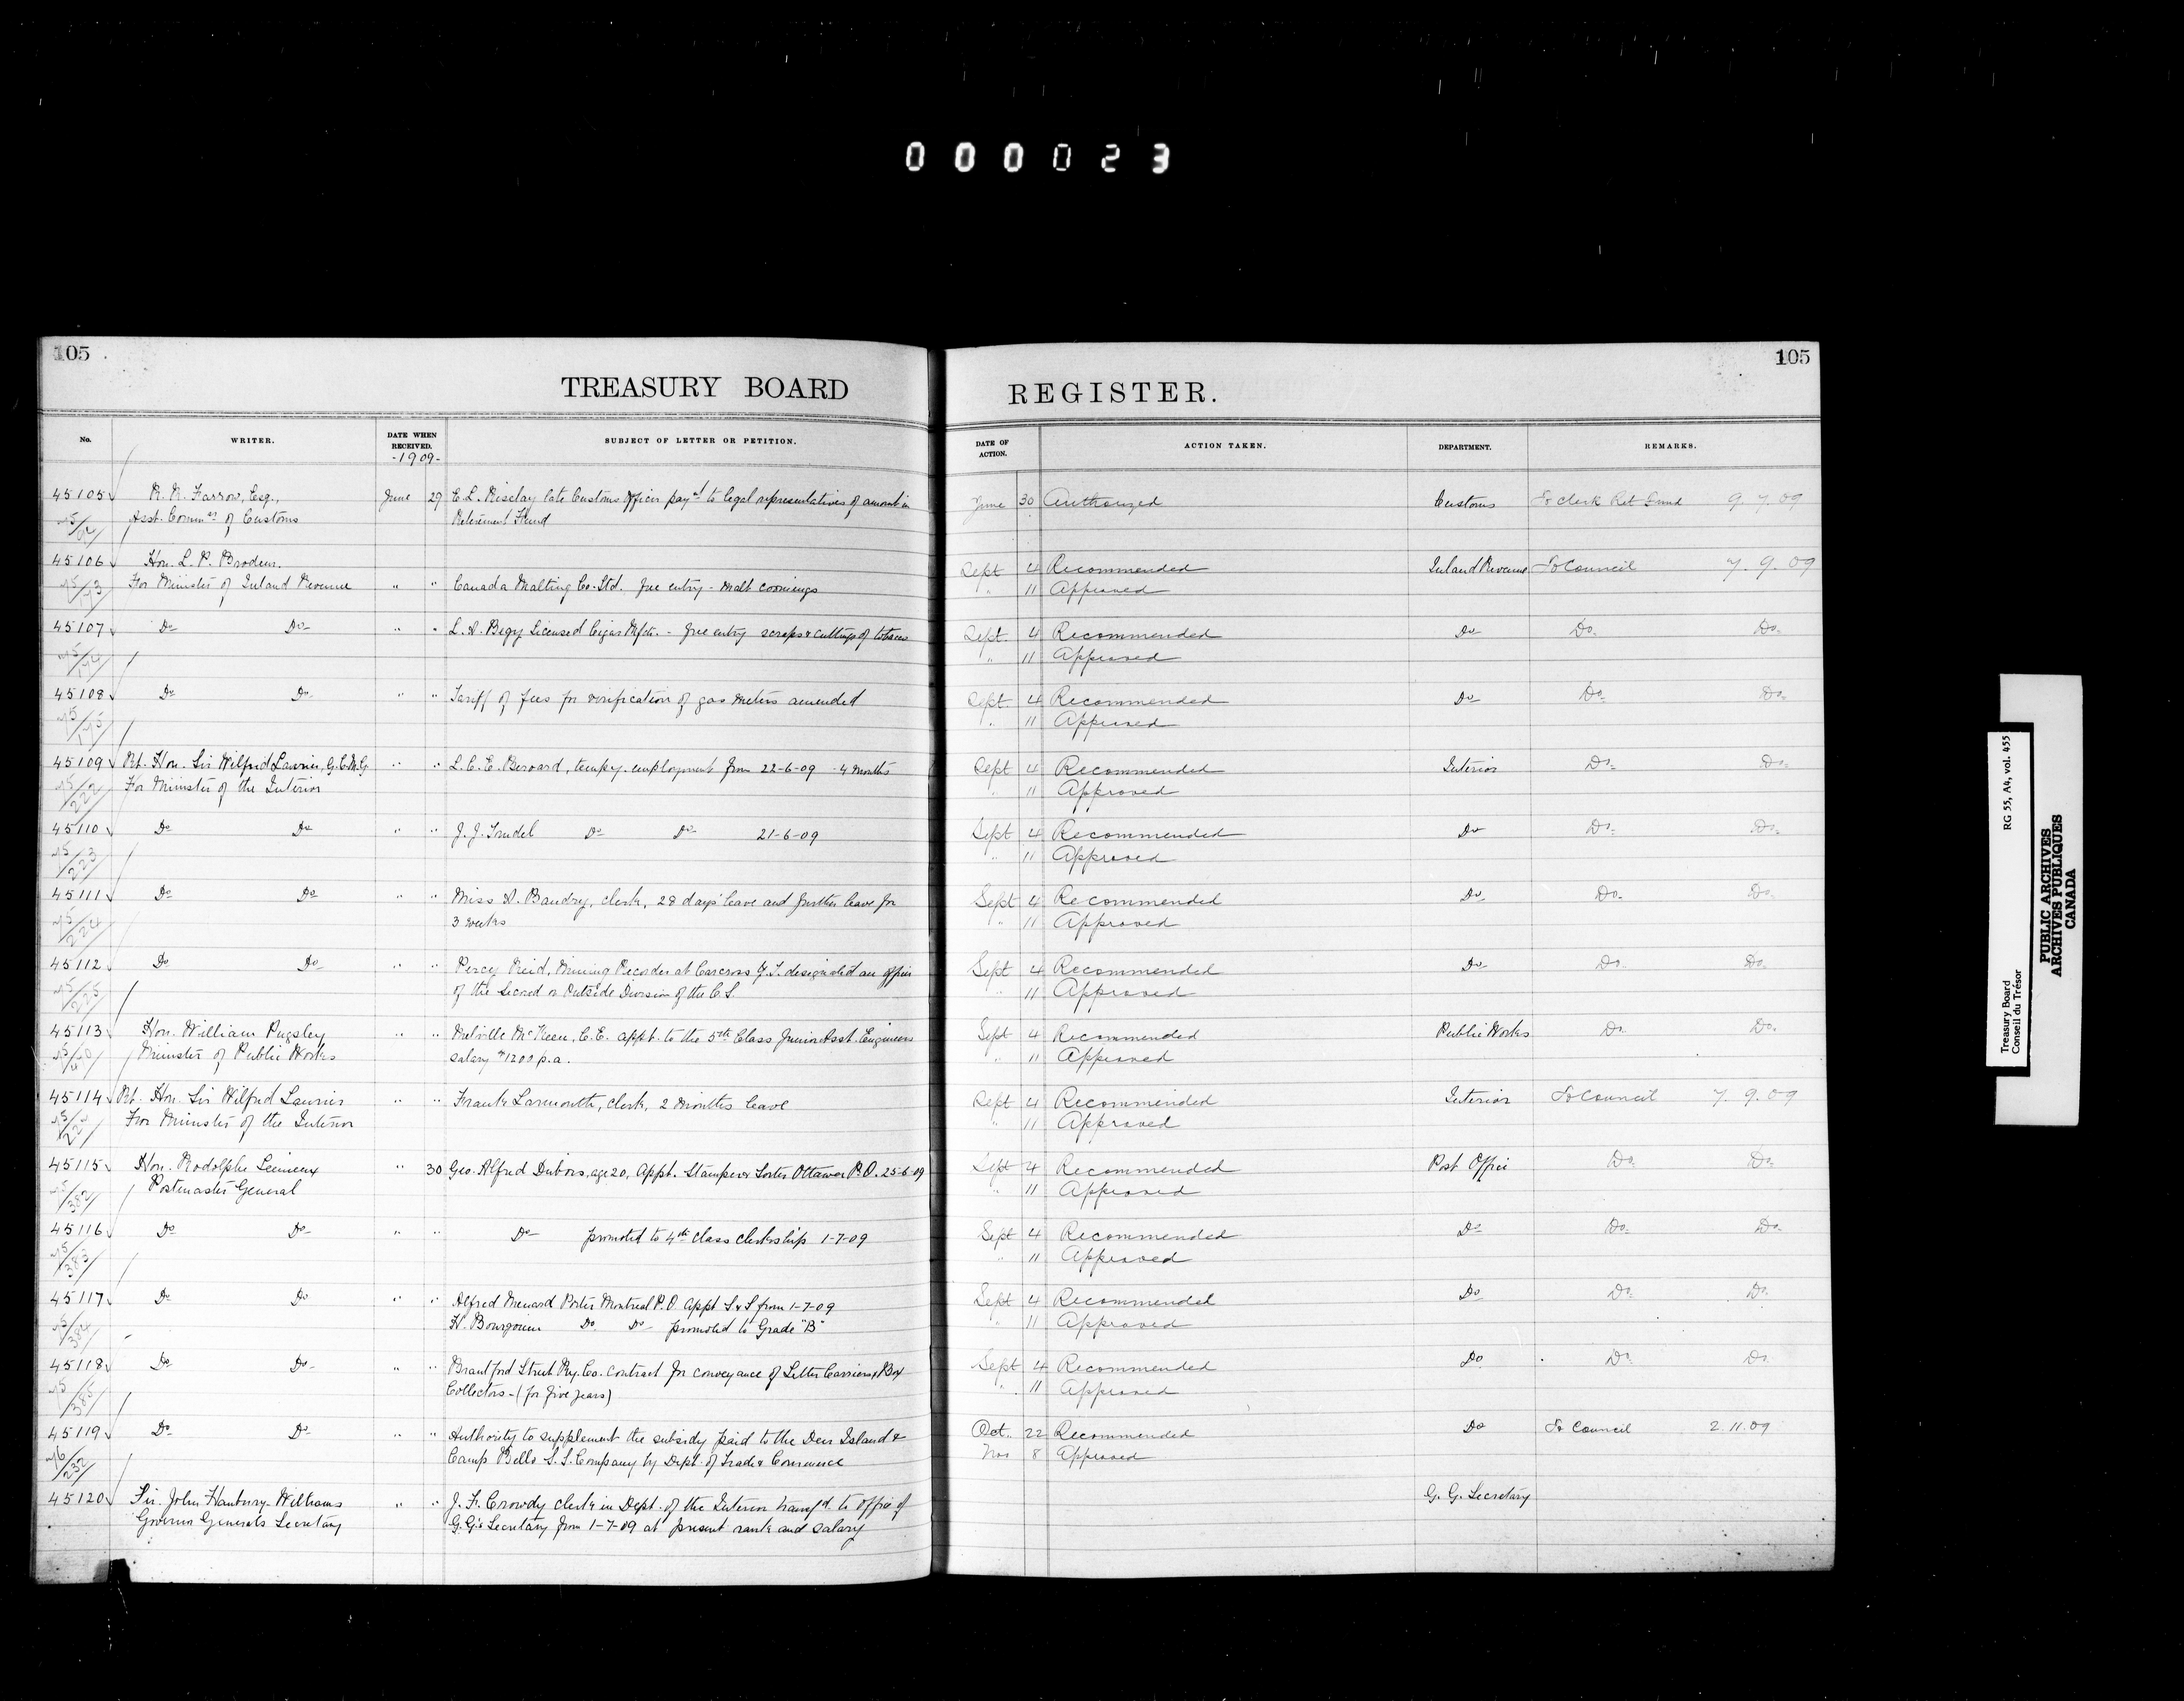 000023
105
TREASURY BOARD
No.
WRITER.
DATE WHEN RECEIVED.
-1909-
SUBJECT OF LETTER OR PETITION.
45105 R. R. Farrow, Esq., June 29 E. L. Risclay late Customs Officer pay't to legal representatives of amount in
Asst. Commr of Customs Retirement Fund
45106 Hon. L. P. Brodeur.
For Minister of Inland Revenue " " Canada Malting Co. Ltd. free entry - Malt coomings
45107 Do Do " " Licensed Cigar Mfctr. - free entry scraps & cuttings of tobacco
45108 Do Do " " Tariff of fees for verification of gas meters amended
45109 Rt. Hon. Sir Wilfrid Laurier, G.C.M.G. " " L. C. E. Beroard, tempy. employment from 22-6-09 4 months
222 For Minister of the Interior
45110 Do Do " " J. J. Trudel Do Do 21-6-09
223
45111 Do Do " " Miss A. Baudry, clerk, 28 days' leave and further leave for
224 3 weeks
45112 Do Do " " Percy Reid, Mining Recorder at Carcross Y.T. designated an officer
225 of the Second or Outside Division of the C.S.
45113 Hon. William Pugsley " " Melville McKeen, C.E. appt. to the 5th Class Junior Asst. Engineers
Minister of Public Works salary $1200 p.a.
45114 Rt. Hon. Sir Wilfred Laurier " " Frank Larmouth, clerk, 2 months leave
For Minister of the Interior
45115 Hon. Rodolphe Lemieux " 30 Geo. Alfred Dubois, age 20, Appt. Stamper & Sorter Ottawa P.O. 25-6-09
382 Postmaster General
45116 Do Do " " Do promoted to 4th class clerkship 1-7-09
383
45117 Do Do " " Alfred Menard Porter Montreal P.O. Appt S. & S. from 1-7-09
384 H. Bourgouin Do Do promoted to Grade "B"
45118 Do Do " " Brantford Street Ry. Co. contract for conveyance of Letter Carriers & Box
385 Collectors - (for five years)
45119 Do Do " " Authority to supplement the subsidy paid to the Deer Island &
232 Camp Bello S.S. Company by Dept. of Trade & Commerce
45120 Sir John Hanbury-Williams " " J. F. Crowdy clerk in Dept. of the Interior transf'd. to office of
Governor General's Secretary G.G's Secretary from 1-7-09 at present rank and salary
105
REGISTER.
DATE OF ACTION.
ACTION TAKEN.
DEPARTMENT.
REMARKS.
June 30 Authorized Customs To Clerk Ret Fund 9.7.09
Sept 4 Recommended Inland Revenue To Council 7.9.09
" 11 Approved
Sept. 4 Recommended Do Do. Do.
" 11 Approved
Sept 4 Recommended Do Do. Do.
" 11 Approved
Sept 4 Recommended Interior Do. Do.
" 11 Approved
Sept 4 Recommended Do Do. Do.
" 11 Approved
Sept 4 Recommended Do Do. Do.
" 11 Approved
Sept 4 Recommended Do Do. Do.
" 11 Approved
Sept 4 Recommended Public Works Do Do.
" 11 Approved
Sept 4 Recommended Interior To Council 7.9.09
" 11 Approved
Sept 4 Recommended Post Office Do. Do.
" 11 Approved
Sept 4 Recommended Do Do. Do.
" 11 Approved
Sept 4 Recommended Do Do. Do.
" 11 Approved
Sept 4 Recommended Do Do. Do
" 11 Approved
Oct. 22 Recommended Do To Council 2.11.09
Nov 8 Approved
G. G. Secretary
Treasury Board
Conseil du Trésor
RG 55, A4, vol. 455
PUBLIC ARCHIVES
ARCHIVES PUBLIQUES
CANADA